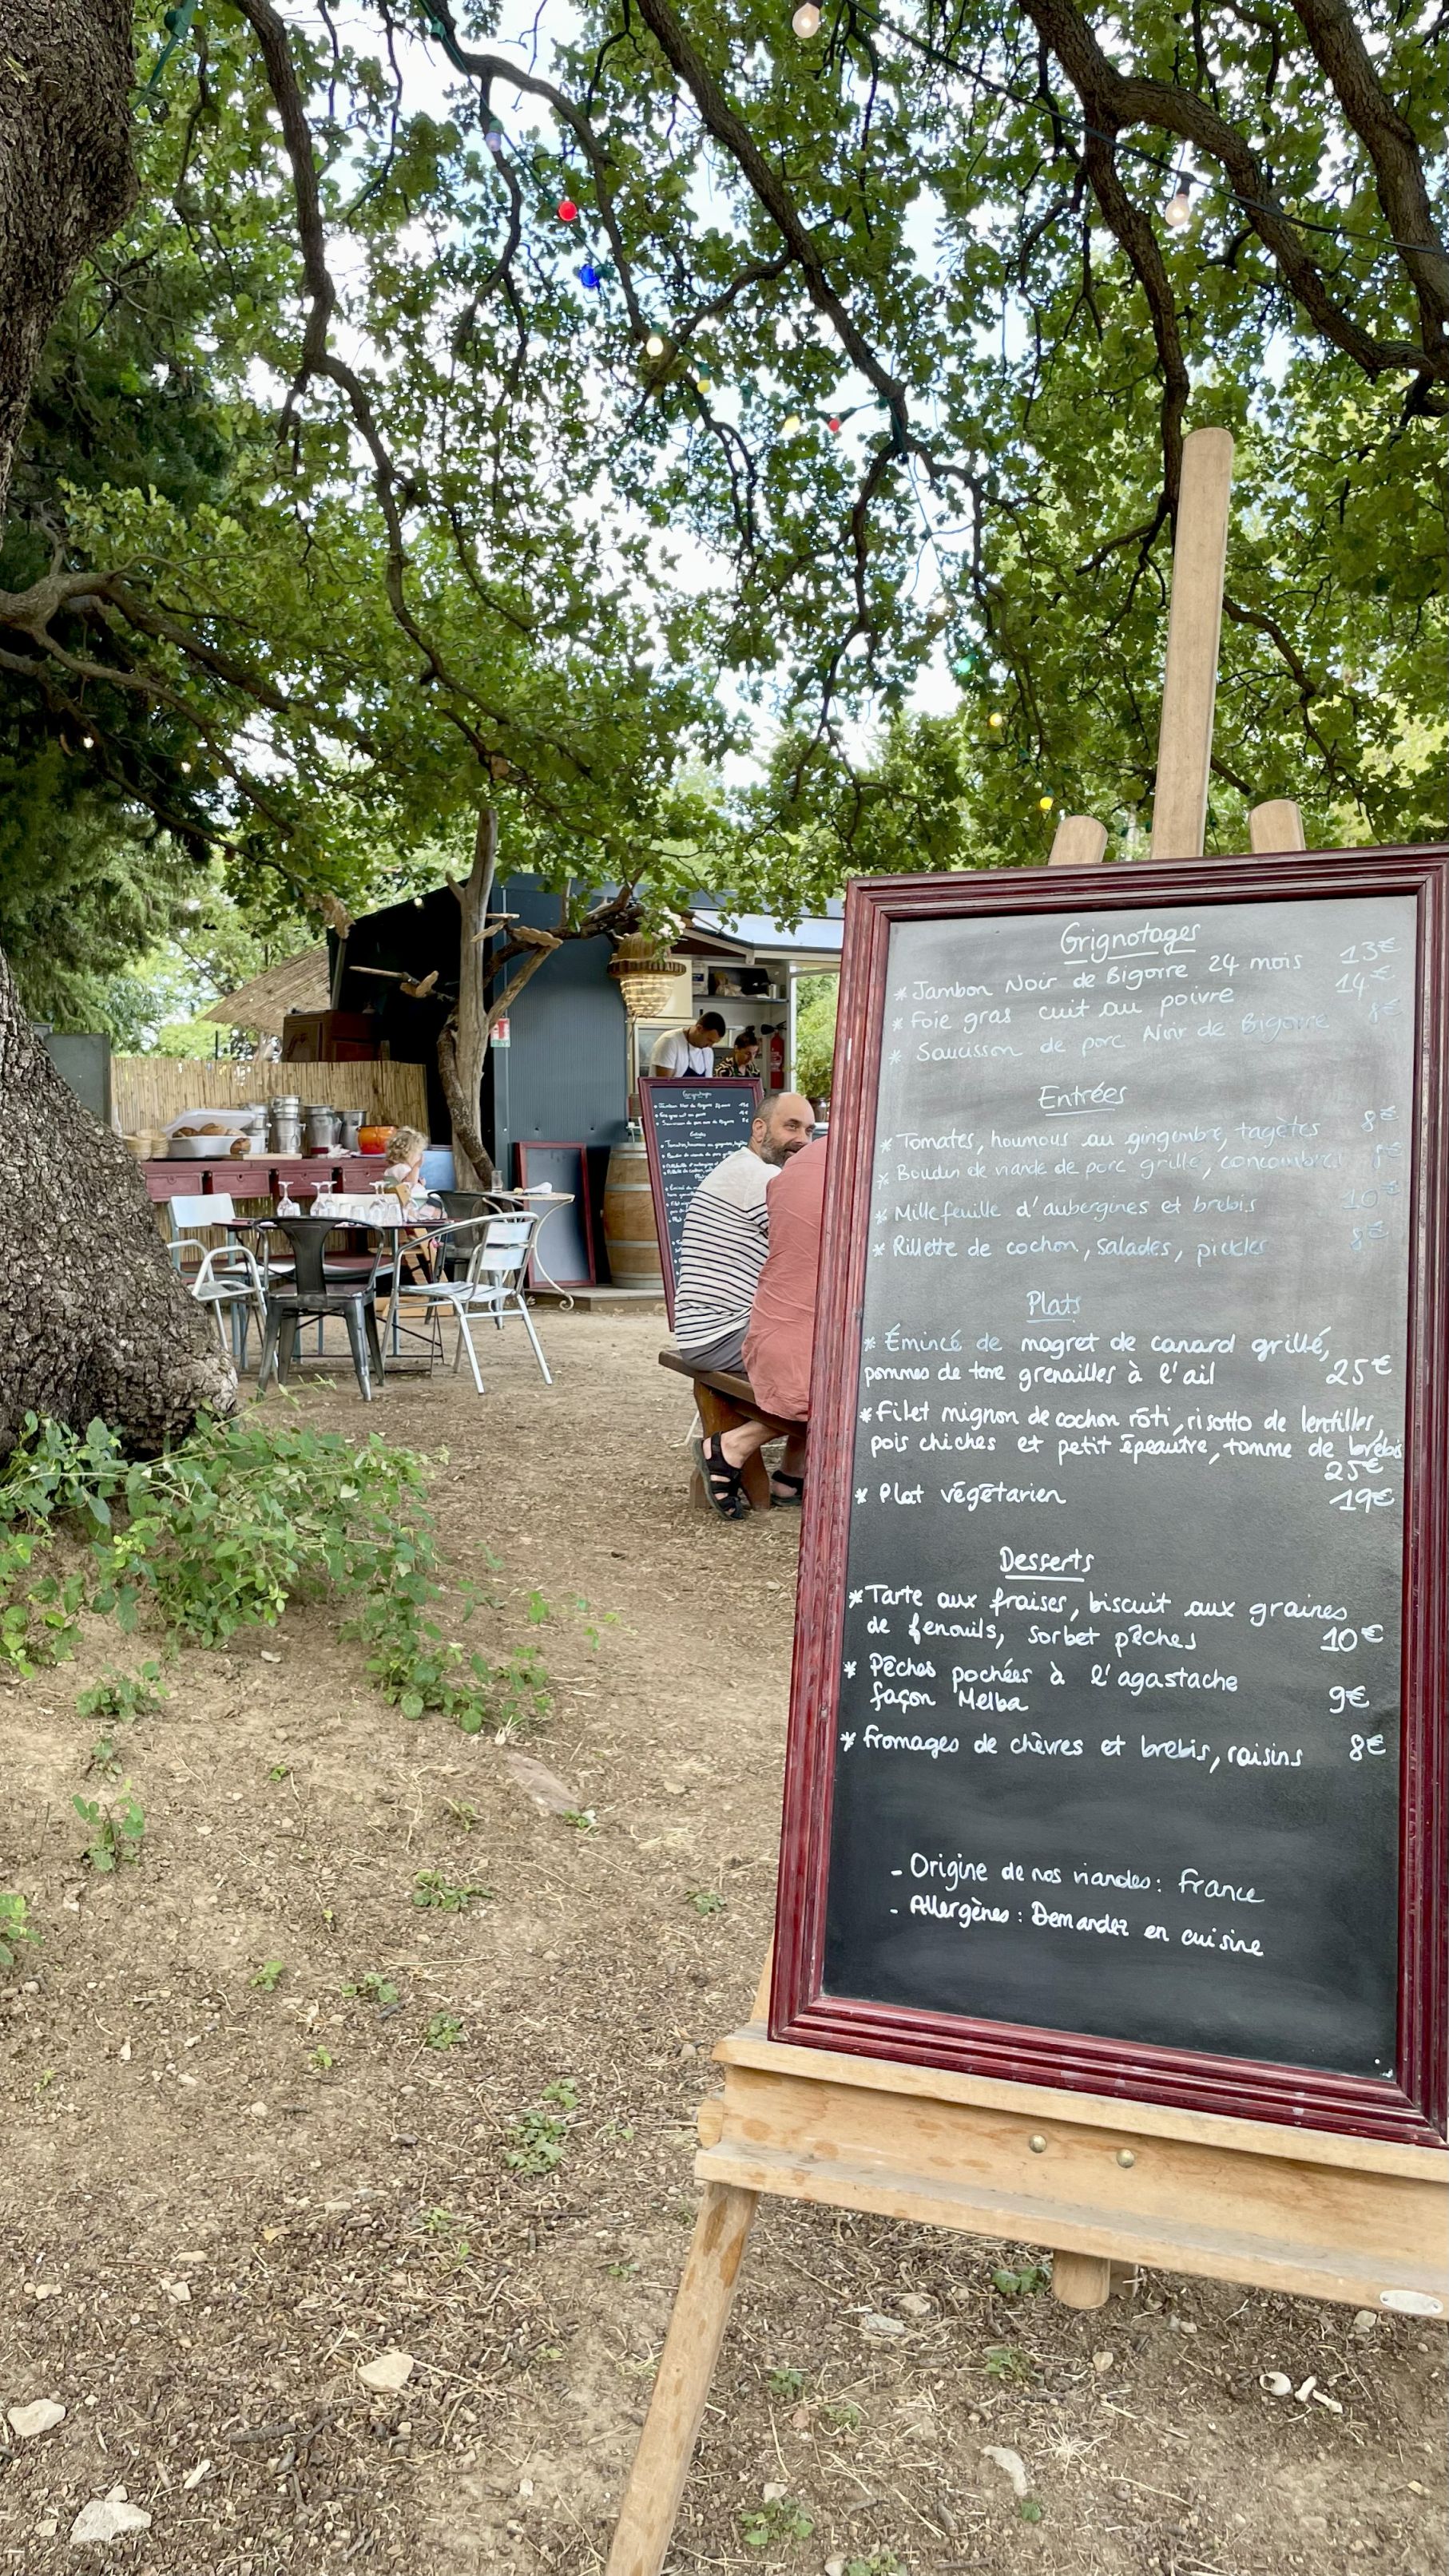 Grignotages
* Jambon Noir de Bigorre 24 mois 13€
* Foie gras cuit au poivre 14€
* Saucisson de porc Noir de Bigorre 8€
Entrées
* Tomates, houmous au gingembre, tagètes 8€
* Boudin de viande de porc grillé, concombre
* Millefeuille d'aubergines et brebis 10€
* Rillette de cochon, salades, pickles 8€
Plats
* Émincé de magret de canard grillé,
pommes de terre grenailles à l'ail 25€
* Filet mignon de cochon rôti, risotto de lentilles,
pois chiches et petit épeautre, tomme de brebis
25€
* Plat végétarien 19€
Desserts
* Tarte aux fraises, biscuit aux graines
de fenouils, sorbet pêches 10€
* Pêches pochées à l'agastache
façon Melba 9€
* fromages de chèvres et brebis, raisins 8€
- Origine de nos viandes : France
- Allergènes : Demandez en cuisine